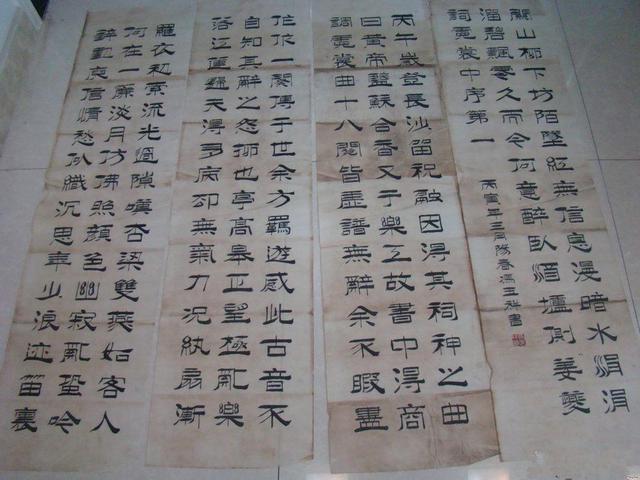 丙午歲登長沙留祝融因得其祠神之曲
曰黃帝鹽蘇合香又于樂工故書中得商
調霓裳曲十八闋皆虛譜無辭余不暇盡
作一闋傳于世余方羈遊感此古音不
自知其辭之怨抑也亭高皋正望極亂樂
落江蓮歸未得多病却無氣力況紈扇漸
羅衣初索流光過隙嘆杏梁雙燕如客人
何在一簾淡月彷佛照顏色幽寂亂蛩吟
壁動庾信情愁似織沉思年少浪迹笛裏
關山柳下坊陌墜紅無信息漫暗水涓涓
溜碧飄零久而今何意醉臥酒壚側姜夔
詞霓裳中序第一
丙寅年三月陽春馮三祥書